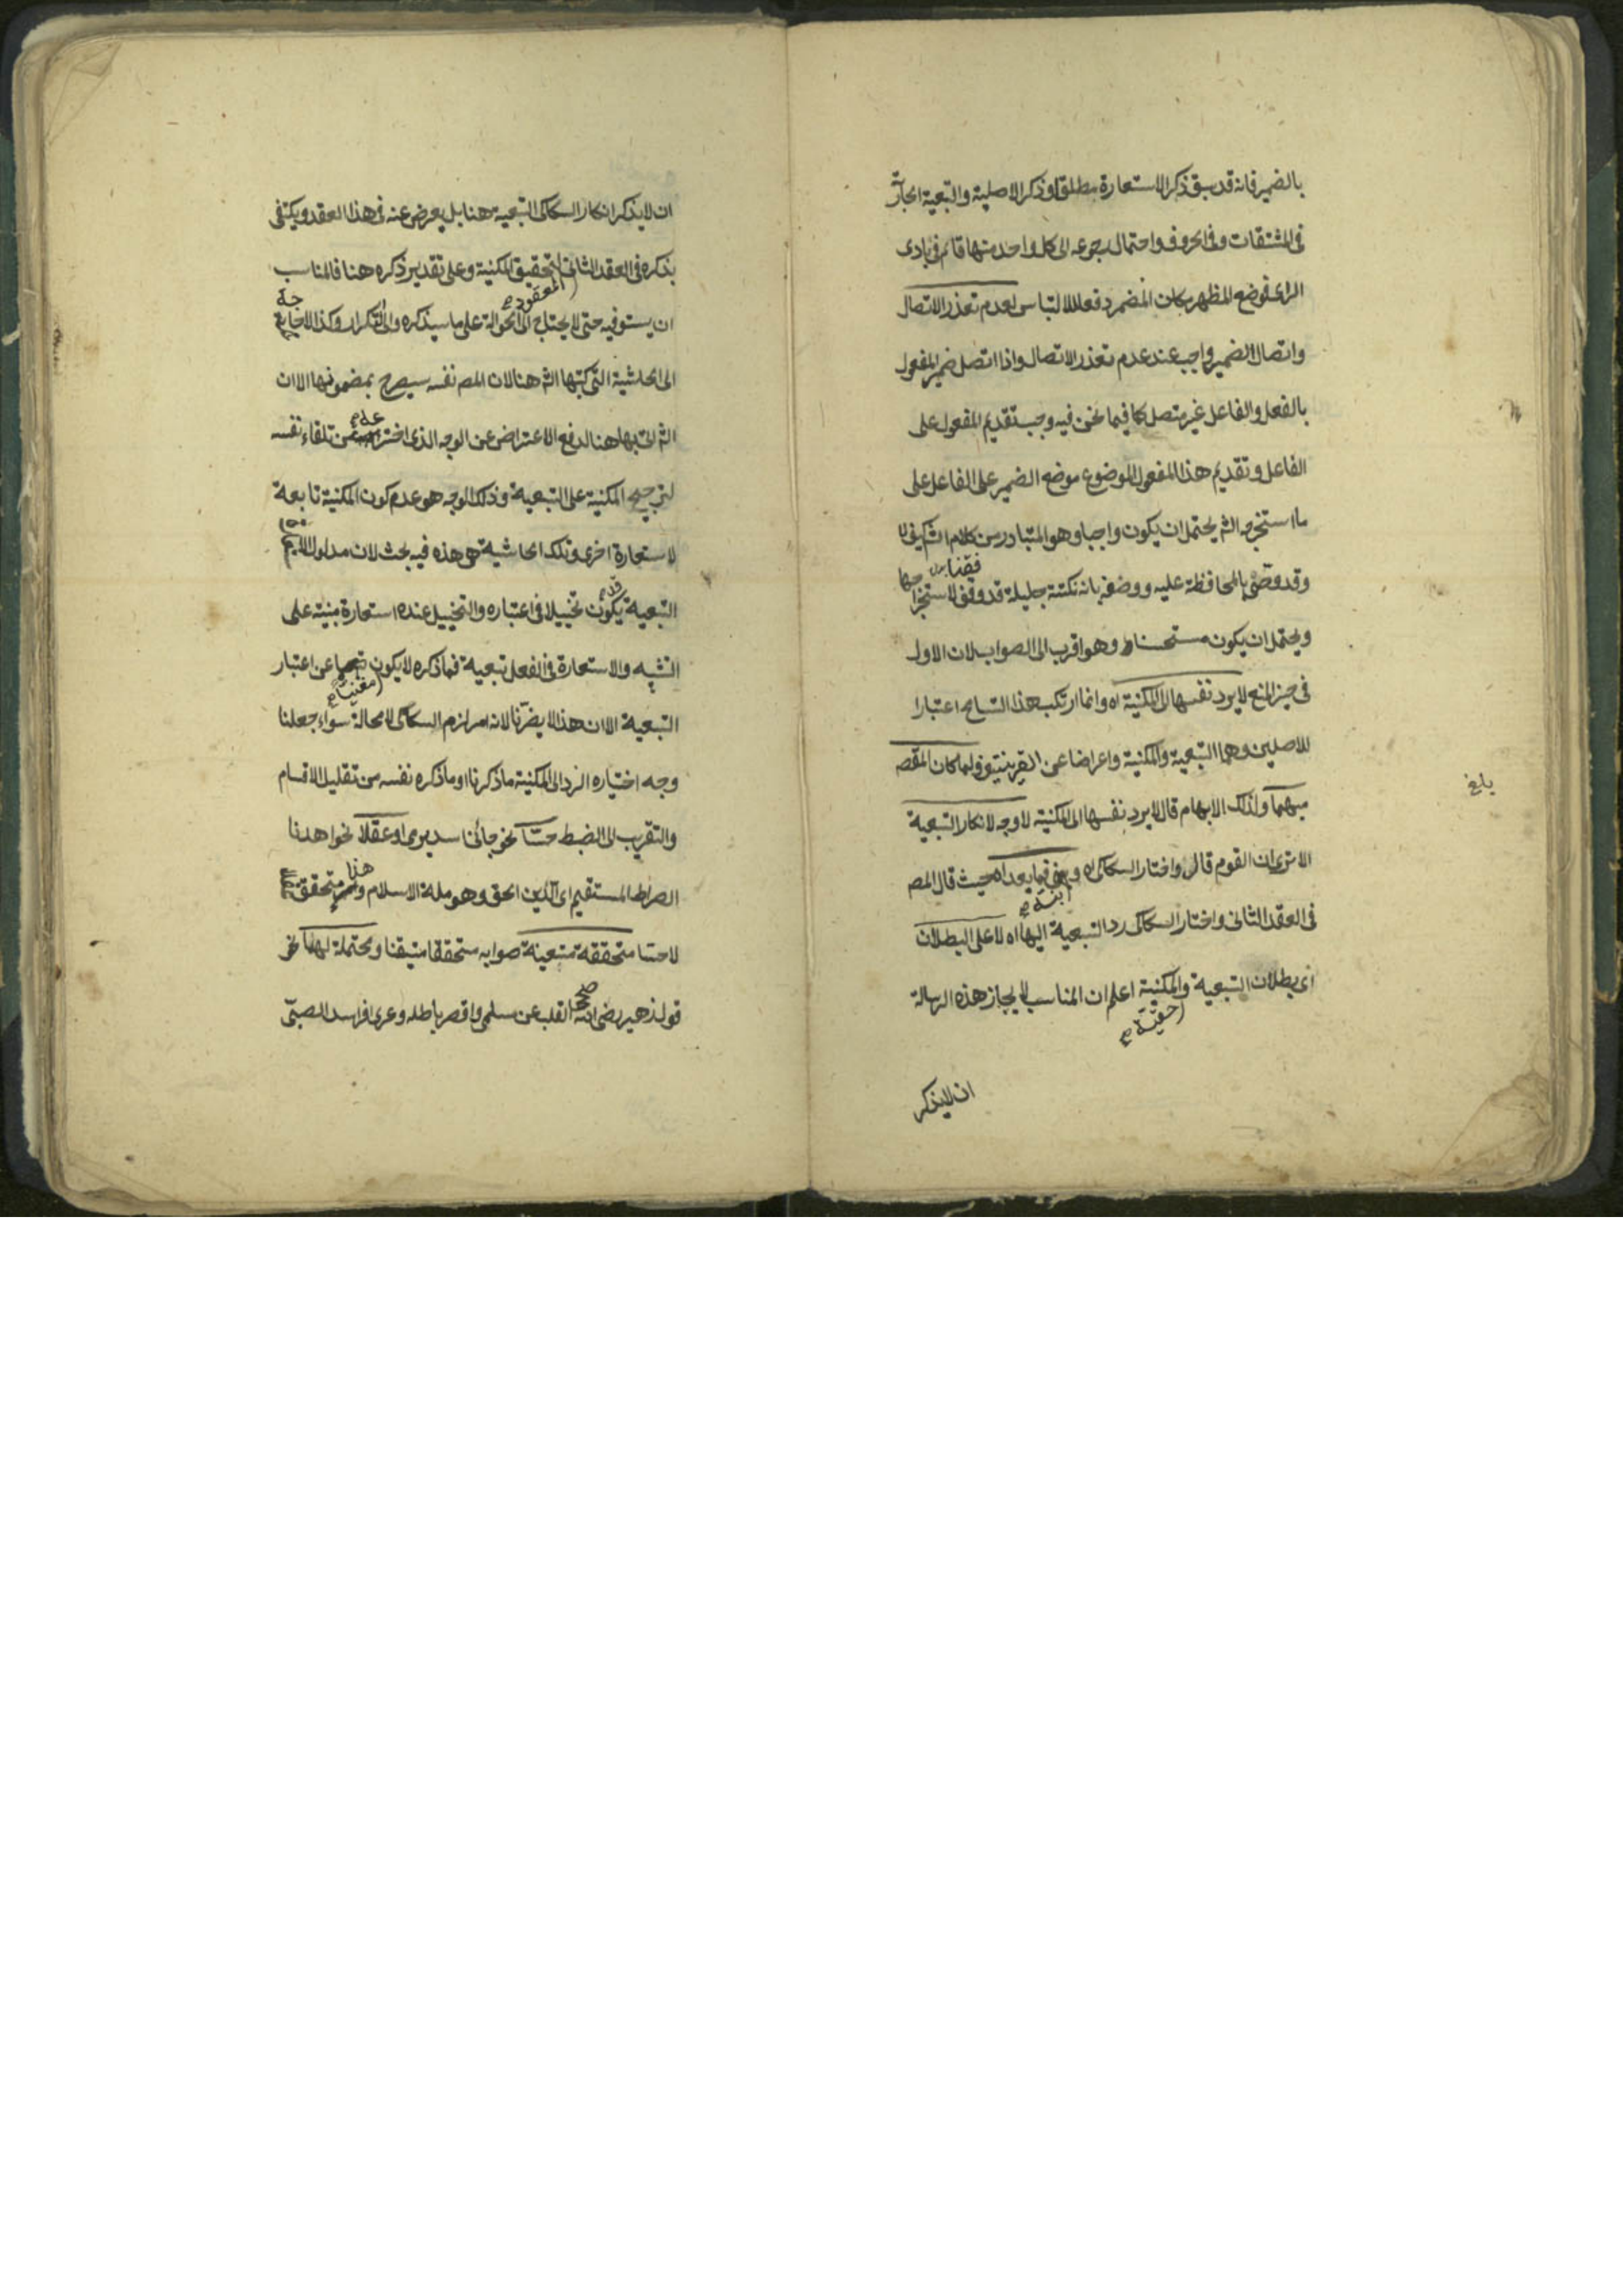 بالضمير فانه قد سبق ذكر الاستعارة مطلقا وذكر الاصلية والتبعية الجارّ
فى المشتقات وفى الحروف واحتمال رجوعه الى كل واحد منها قائم فى بادى
الراى فوضع المظهر مكان المضمر دفعا للالتباس لعدم تعذر الاتصال
واتصال الضمير واجب عند عدم تعذر الاتصال واذا اتصل ضمير المفعول
بالفعل والفاعل غير متصل كما فيما نحن فيه وجب تقديم المفعول على
الفاعل وتقديم هذا المفعول الموضوع موضع الضمير على الفاعل على
ما استخرجه الشم يحتمل ان يكون واجبا وهو المتبادر من كلام الشم كيف لا
وقد وصّى بالمحافظة عليه ووصفه بانه نكتة جليلة قد وفقنا لاستخراجها
ويحتمل ان يكون مستحسنا وهو اقرب الى الصواب لان الاول
فى حيز المنع لا يرد نفسها الى المكنية اه وانما ارتكب هذا التسامح اعتبارا
للاصلين وهما التبعية والمكنية واعراضا عن القرينتين ولما كان المقصم
مبهما ولذلك الابهام قال لا يرد نفسها الى المكنية لا وجه لانكار التبعية
الا ترى ان القوم قال واختار السكاكى اه فيما بعد اه حيث قال المصم
فى العقد الثانى واختار السكاكى رد التبعية اليها اه لا على البطلان
اى بطلان التبعية والمكنية اعلم ان المناسب لايجاز هذه الرسالة
حقية صح
ان لا يذكر
بلغ
ان لا يذكر انكار السكاكى التبعية هنا بل يعرض عنه فى هذا العقد ويكتفى
بذكره فى العقد الثانى لتحقيق المكنية وعلى تقدير ذكره هنا فالمناسب
المعقود صح
ان يستوفيه حتى لا يحتاج الى الحوالة على ما سيذكره والى التكرار وكذا لا حاجة
الى الحاشية التى كتبها الشم هنا لان المصم نفسه سيصرح بمضمونها الا ان
الشم اتى بها هنا لدفع الاعتراض عن الوجه الذى اخترعه من تلقاء نفسه
لترجيح المكنية على التبعية وذلك الوجه هو عدم كون المكنية تابعة
لاستعارة اخرى وتلك الحاشية هى هذه فيه بحث لان مدلول
التبعية يكون تخييلا فى اعتباره والتخييل عنده استعارة مبنية على
التشبيه والاستعارة فى الفعل تبعية فما ذكره لا يكون مغنيا عن اعتبار
التبعية الا ان هذا لا يضرنا لانه امر لزم السكاكى لا محالة سواء جعلنا
وجه اختياره الرد الى المكنية ما ذكرنا او ما ذكره نفسه من تقليل الاقسام
والتقريب الى الضبط حسّا نحو جائنا اسد يرمى او عقلا نحو اهدنا
الصراط المستقيم اى الدين الحق وهو ملة الاسلام وهذا متحقق
لا حسا متحققة متعينة صوابه متحققا متيقنا ومحتملة لهما نحو
قول زهير رضى الله صحا القلب عن سلمى واقصر باطله وعرى افراس الصبى